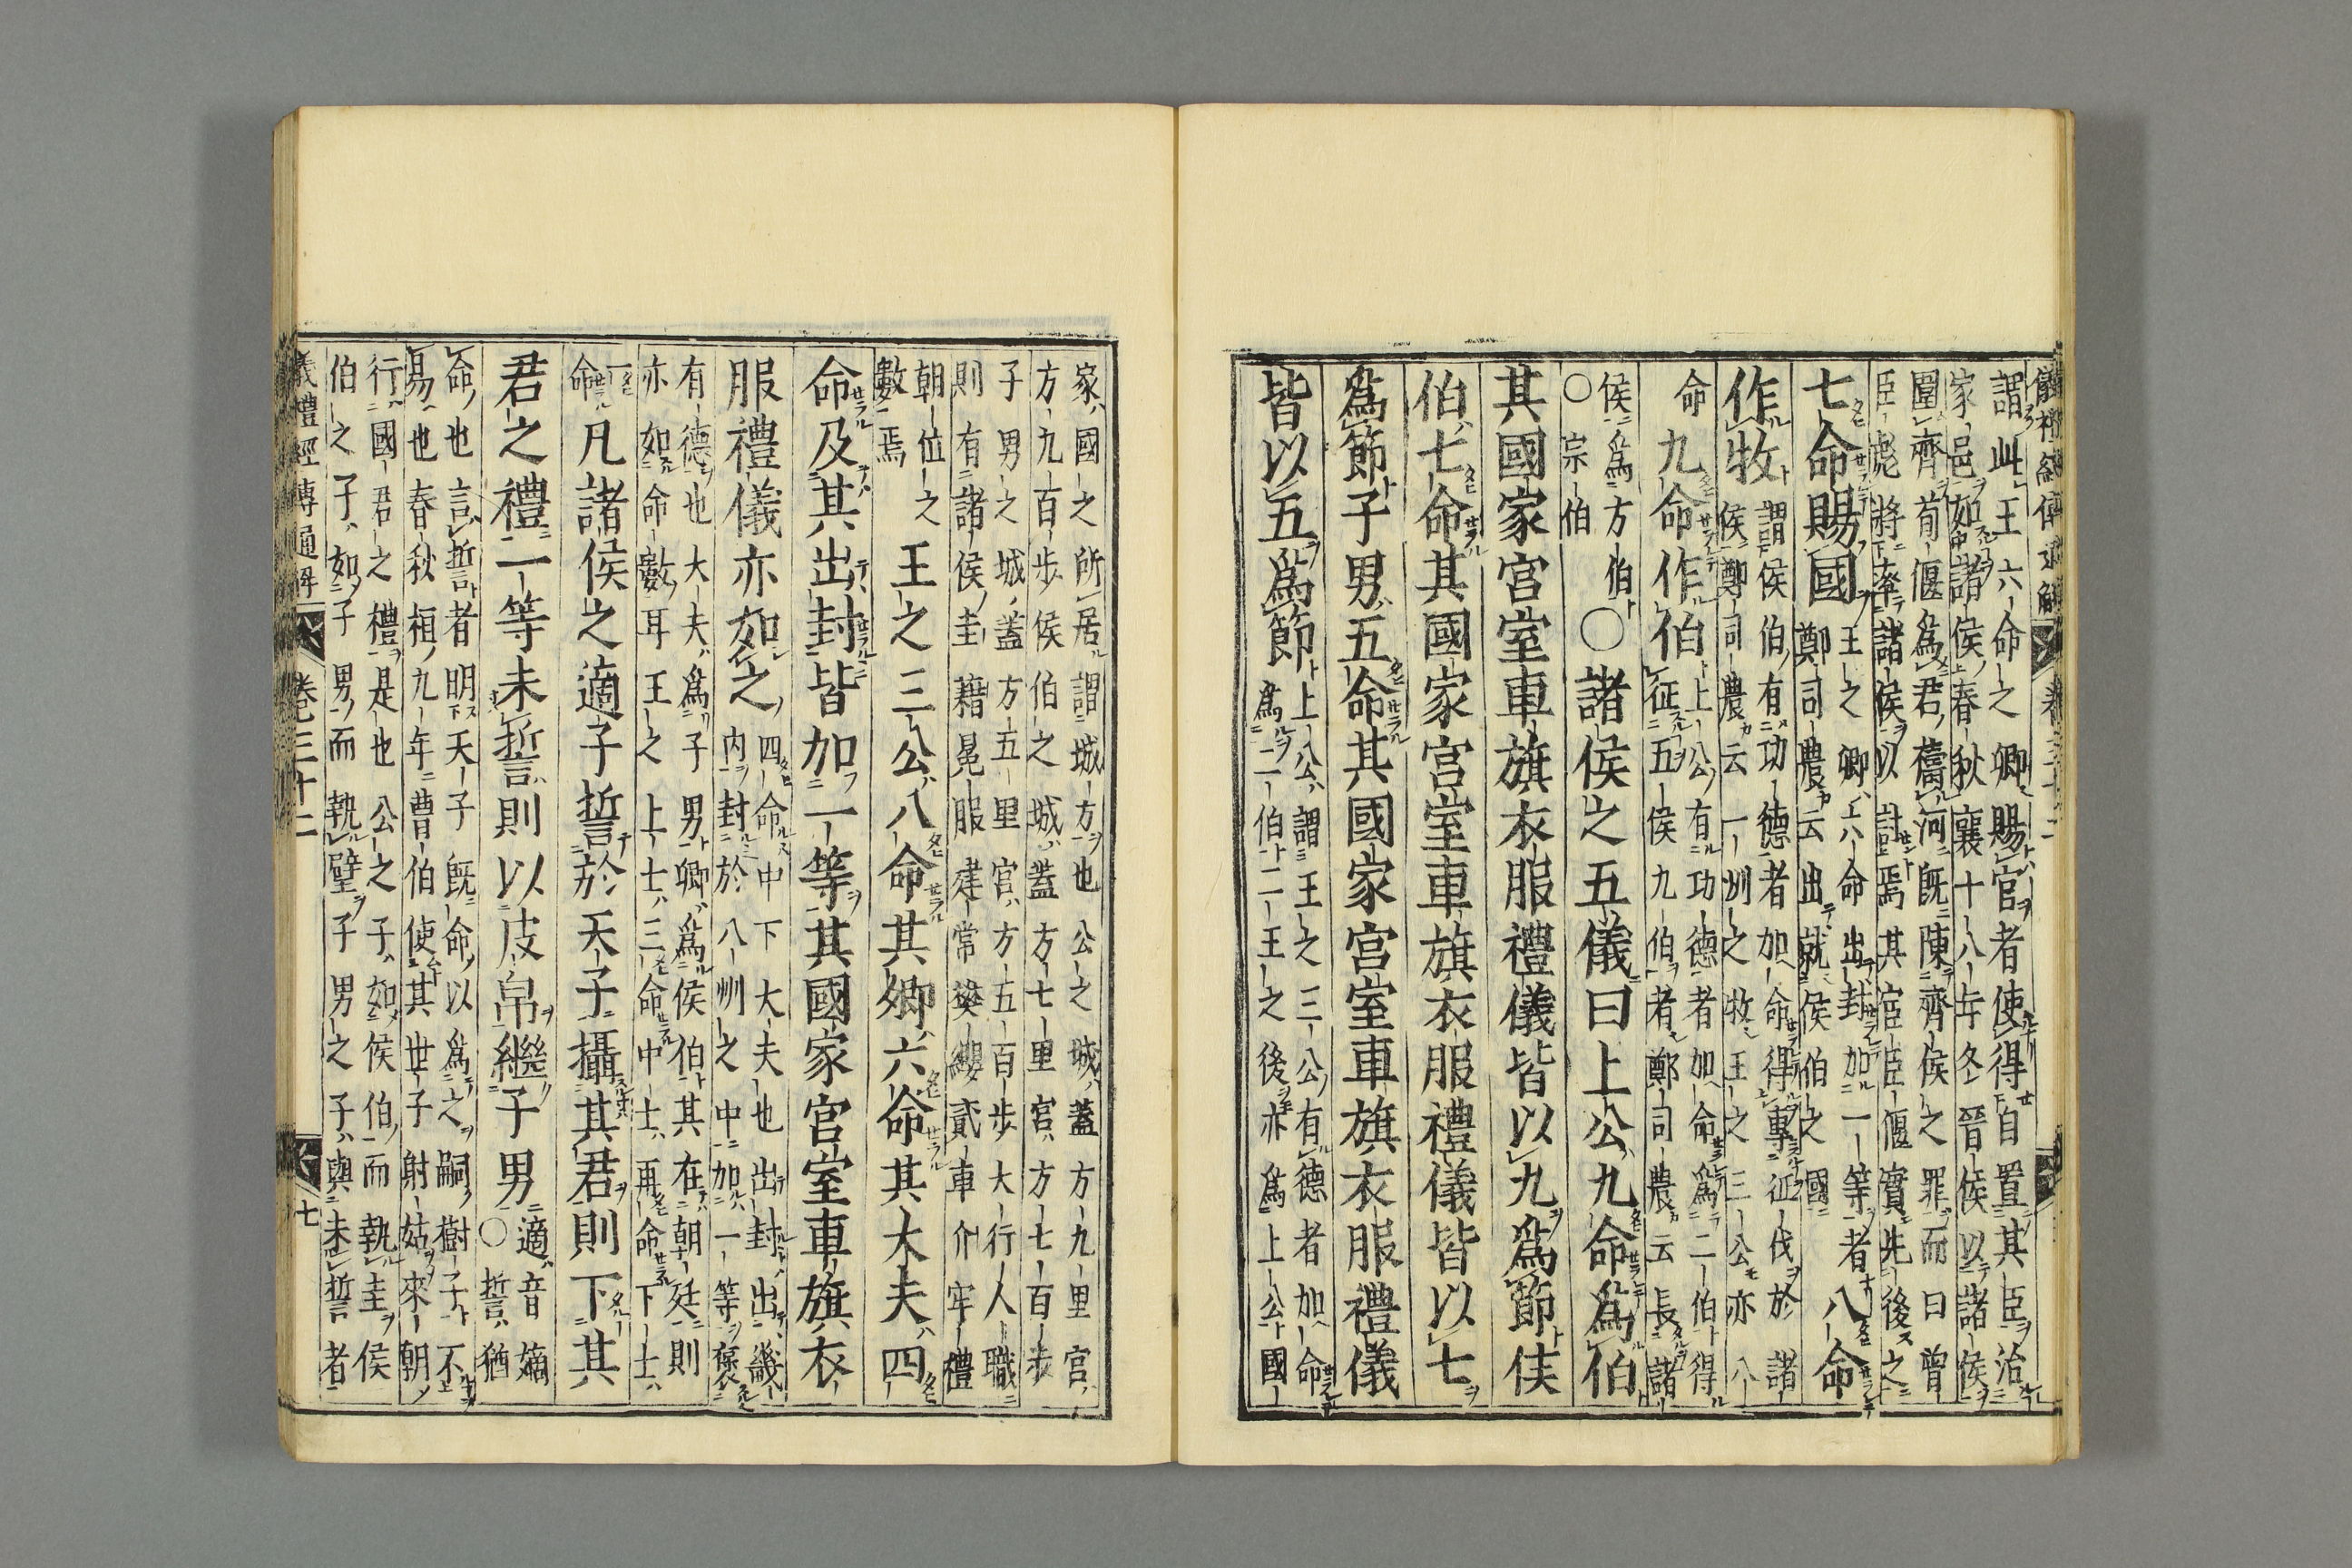 儀禮經傳通解 卷三十二
謂此王六命之卿賜官者使得自置其臣治
家邑如諸侯春秋襄十八年冬晉侯以諸侯
圍齊荀偃爲君禱河既陳齊侯之罪而曰曾
臣彪將率諸侯以討焉其官臣偃實先後之
七命賜國
王之卿八命出封加一等者
鄭司農云出就侯伯之國
八命
作牧
謂侯伯有功德者加命得專征伐於諸
侯鄭司農云一州之牧王之三公亦八
命
九命作伯
上公有功德者加命爲二伯得
征五侯九伯者鄭司農云長諸
侯爲方伯
○宗伯
○諸侯之五儀曰上公九命爲伯
其國家宮室車旗衣服禮儀皆以九爲節侯
伯七命其國家宮室車旗衣服禮儀皆以七
爲節子男五命其國家宮室車旗衣服禮儀
皆以五爲節
上公謂王之三公有德者加命
爲二伯二王之後亦爲上公國
家國之所居謂城方也公之城蓋方九里宮
方九百步侯伯之城蓋方七里宮方七百步
子男之城蓋方五里宮方五百步大行人職
則有諸侯圭藉冕服建常樊纓貳車介牢禮
朝位之
數焉
王之三公八命其卿六命其大夫四
命及其出封皆加一等其國家宮室車旗衣
服禮儀亦如之
四命中下大夫也出封出畿
內封於八州之中加一等褒
有德也大夫爲子男卿爲侯伯其在朝廷則
亦如命數耳王之上士三命中士再命下士
一命
凡諸侯之適子誓於天子攝其君則下其
君之禮一等未誓則以皮帛繼子男
適音嫡
○誓猶
命也言誓者明天子既命以爲之嗣樹子不
易也春秋桓九年曹伯使其世子射姑來朝
行國君之禮是也公之子如侯伯而執圭侯
伯之子如子男而執璧子男之子與未誓者
儀禮經傳通解 卷三十二 七